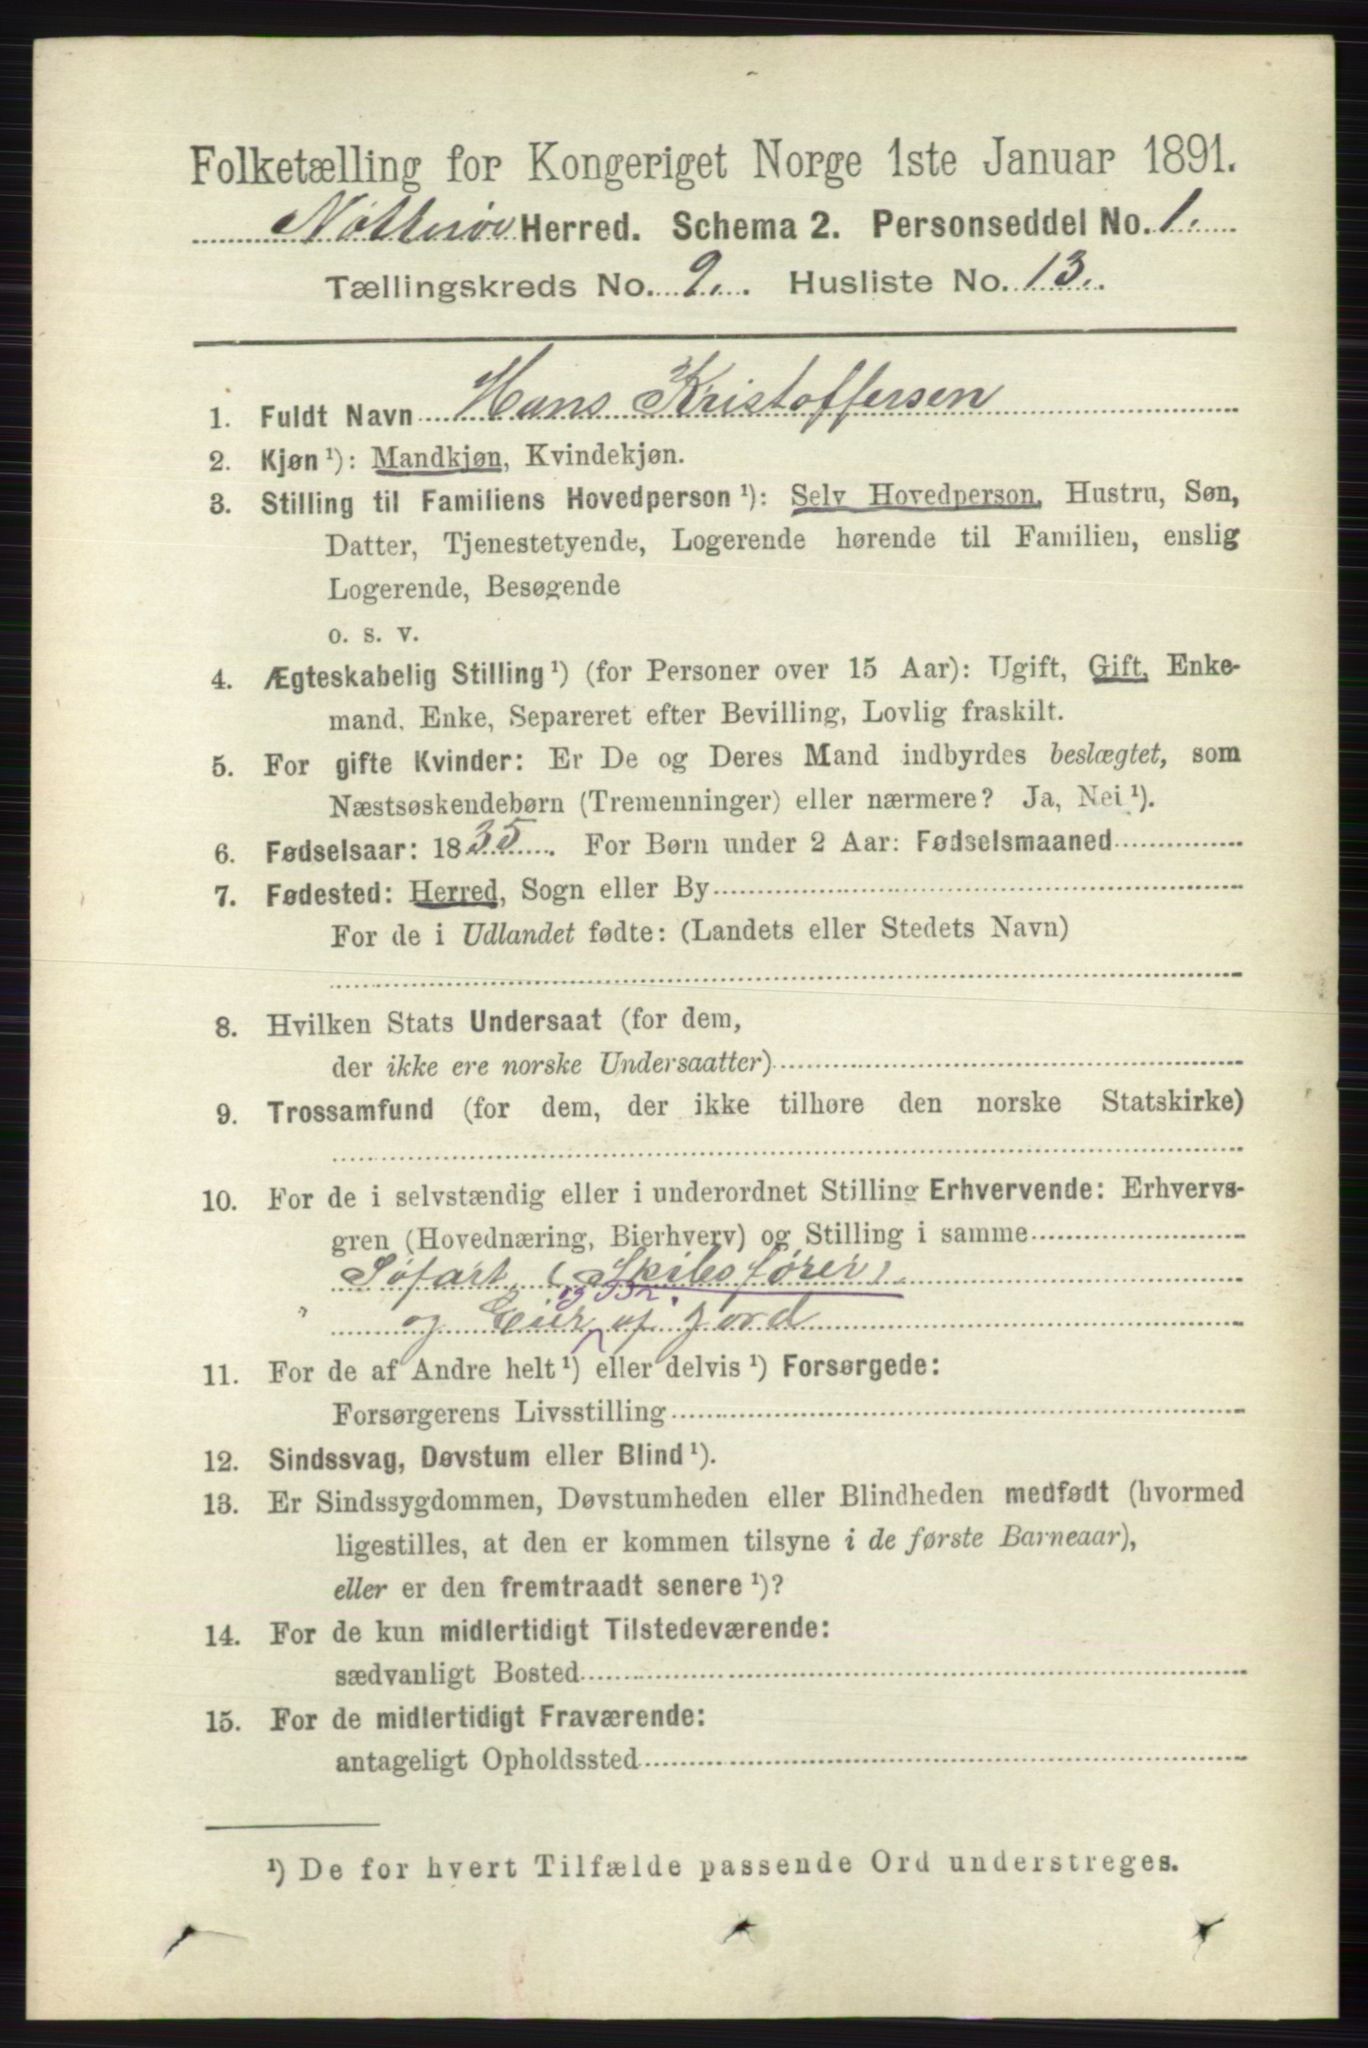 Folketælling for Kongeriget Norge 1ste Januar 1891.
Nøtterøe Herred. Schema 2. Personseddel No. 1.
Tællingskreds No. 9. Husliste No. 13.
1. Fuldt Navn Hans Kristoffersen
2. Kjøn ¹): Mandkjøn, Kvindekjøn.
3. Stilling til Familiens Hovedperson ¹): Selv Hovedperson, Hustru, Søn,
Datter, Tjenestetyende, Logerende hørende til Familien, enslig
Logerende, Besøgende
o. s. v.
4. Ægteskabelig Stilling ¹) (for Personer over 15 Aar): Ugift, Gift, Enke-
mand, Enke, Separeret efter Bevilling, Lovlig fraskilt.
5. For gifte Kvinder: Er De og Deres Mand indbyrdes beslægtet, som
Næstsøskendebørn (Tremenninger) eller nærmere? Ja, Nei ¹).
6. Fødselsaar: 1835. For Børn under 2 Aar: Fødselsmaaned
7. Fødested: Herred, Sogn eller By
For de i Udlandet fødte: (Landets eller Stedets Navn)
8. Hvilken Stats Undersaat (for dem,
der ikke ere norske Undersaatter)
9. Trossamfund (for dem, der ikke tilhøre den norske Statskirke)
10. For de i selvstændig eller i underordnet Stilling Erhvervende: Erhvervs-
gren (Hovednæring, Bierhverv) og Stilling i samme
Søfart (Skibsfører)
og Eier af Jord
11. For de af Andre helt ¹) eller delvis ¹) Forsørgede:
Forsørgerens Livsstilling
12. Sindssvag, Døvstum eller Blind ¹).
13. Er Sindssygdommen, Døvstumheden eller Blindheden medfødt (hvormed
ligestilles, at den er kommen tilsyne i de første Barneaar),
eller er den fremtraadt senere ¹)?
14. For de kun midlertidigt Tilstedeværende:
sædvanligt Bosted
15. For de midlertidigt Fraværende:
antageligt Opholdssted
¹) De for hvert Tilfælde passende Ord understreges.